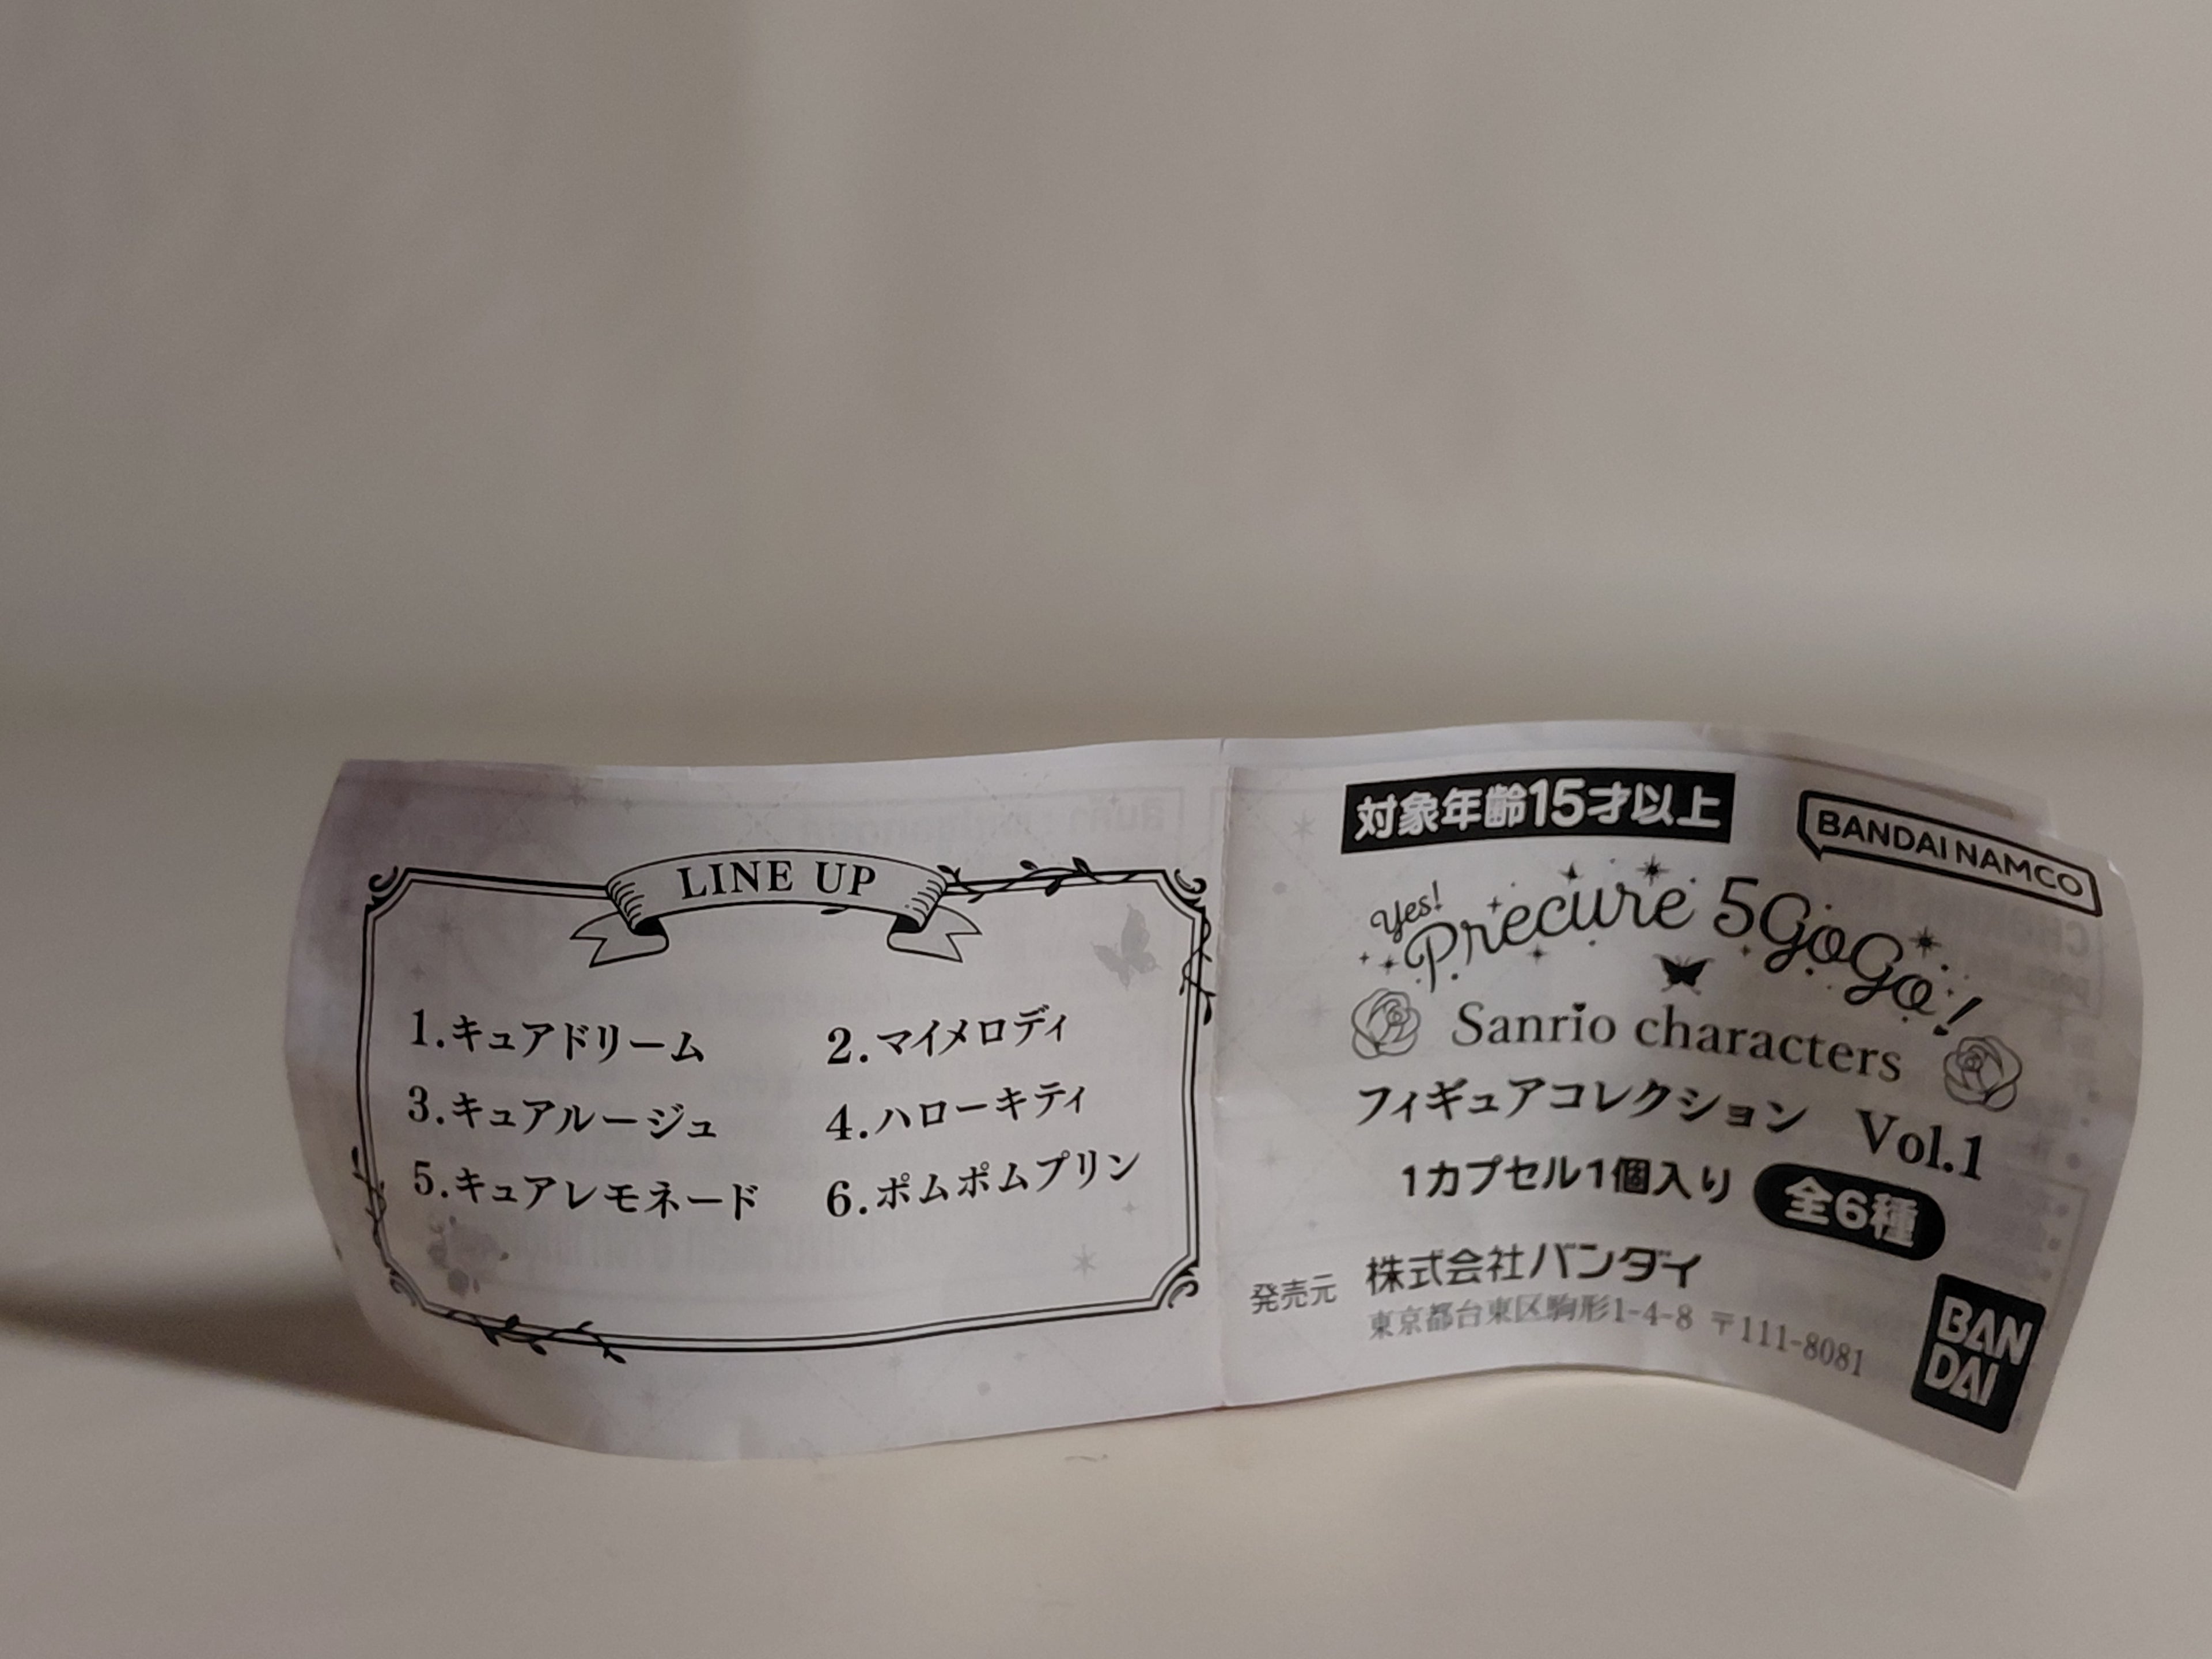 LINE UP
1.キュアドリーム
2.マイメロディ
3.キュアルージュ
4.ハローキティ
5.キュアレモネード
6.ポムポムプリン
対象年齢15才以上
BANDAI NAMCO
Yes!
Precure 5GoGo!
Sanrio characters
フィギュアコレクション Vol.1
1カプセル1個入り 全6種
発売元 株式会社バンダイ
東京都台東区駒形1-4-8 〒111-8081
BAN
DAI